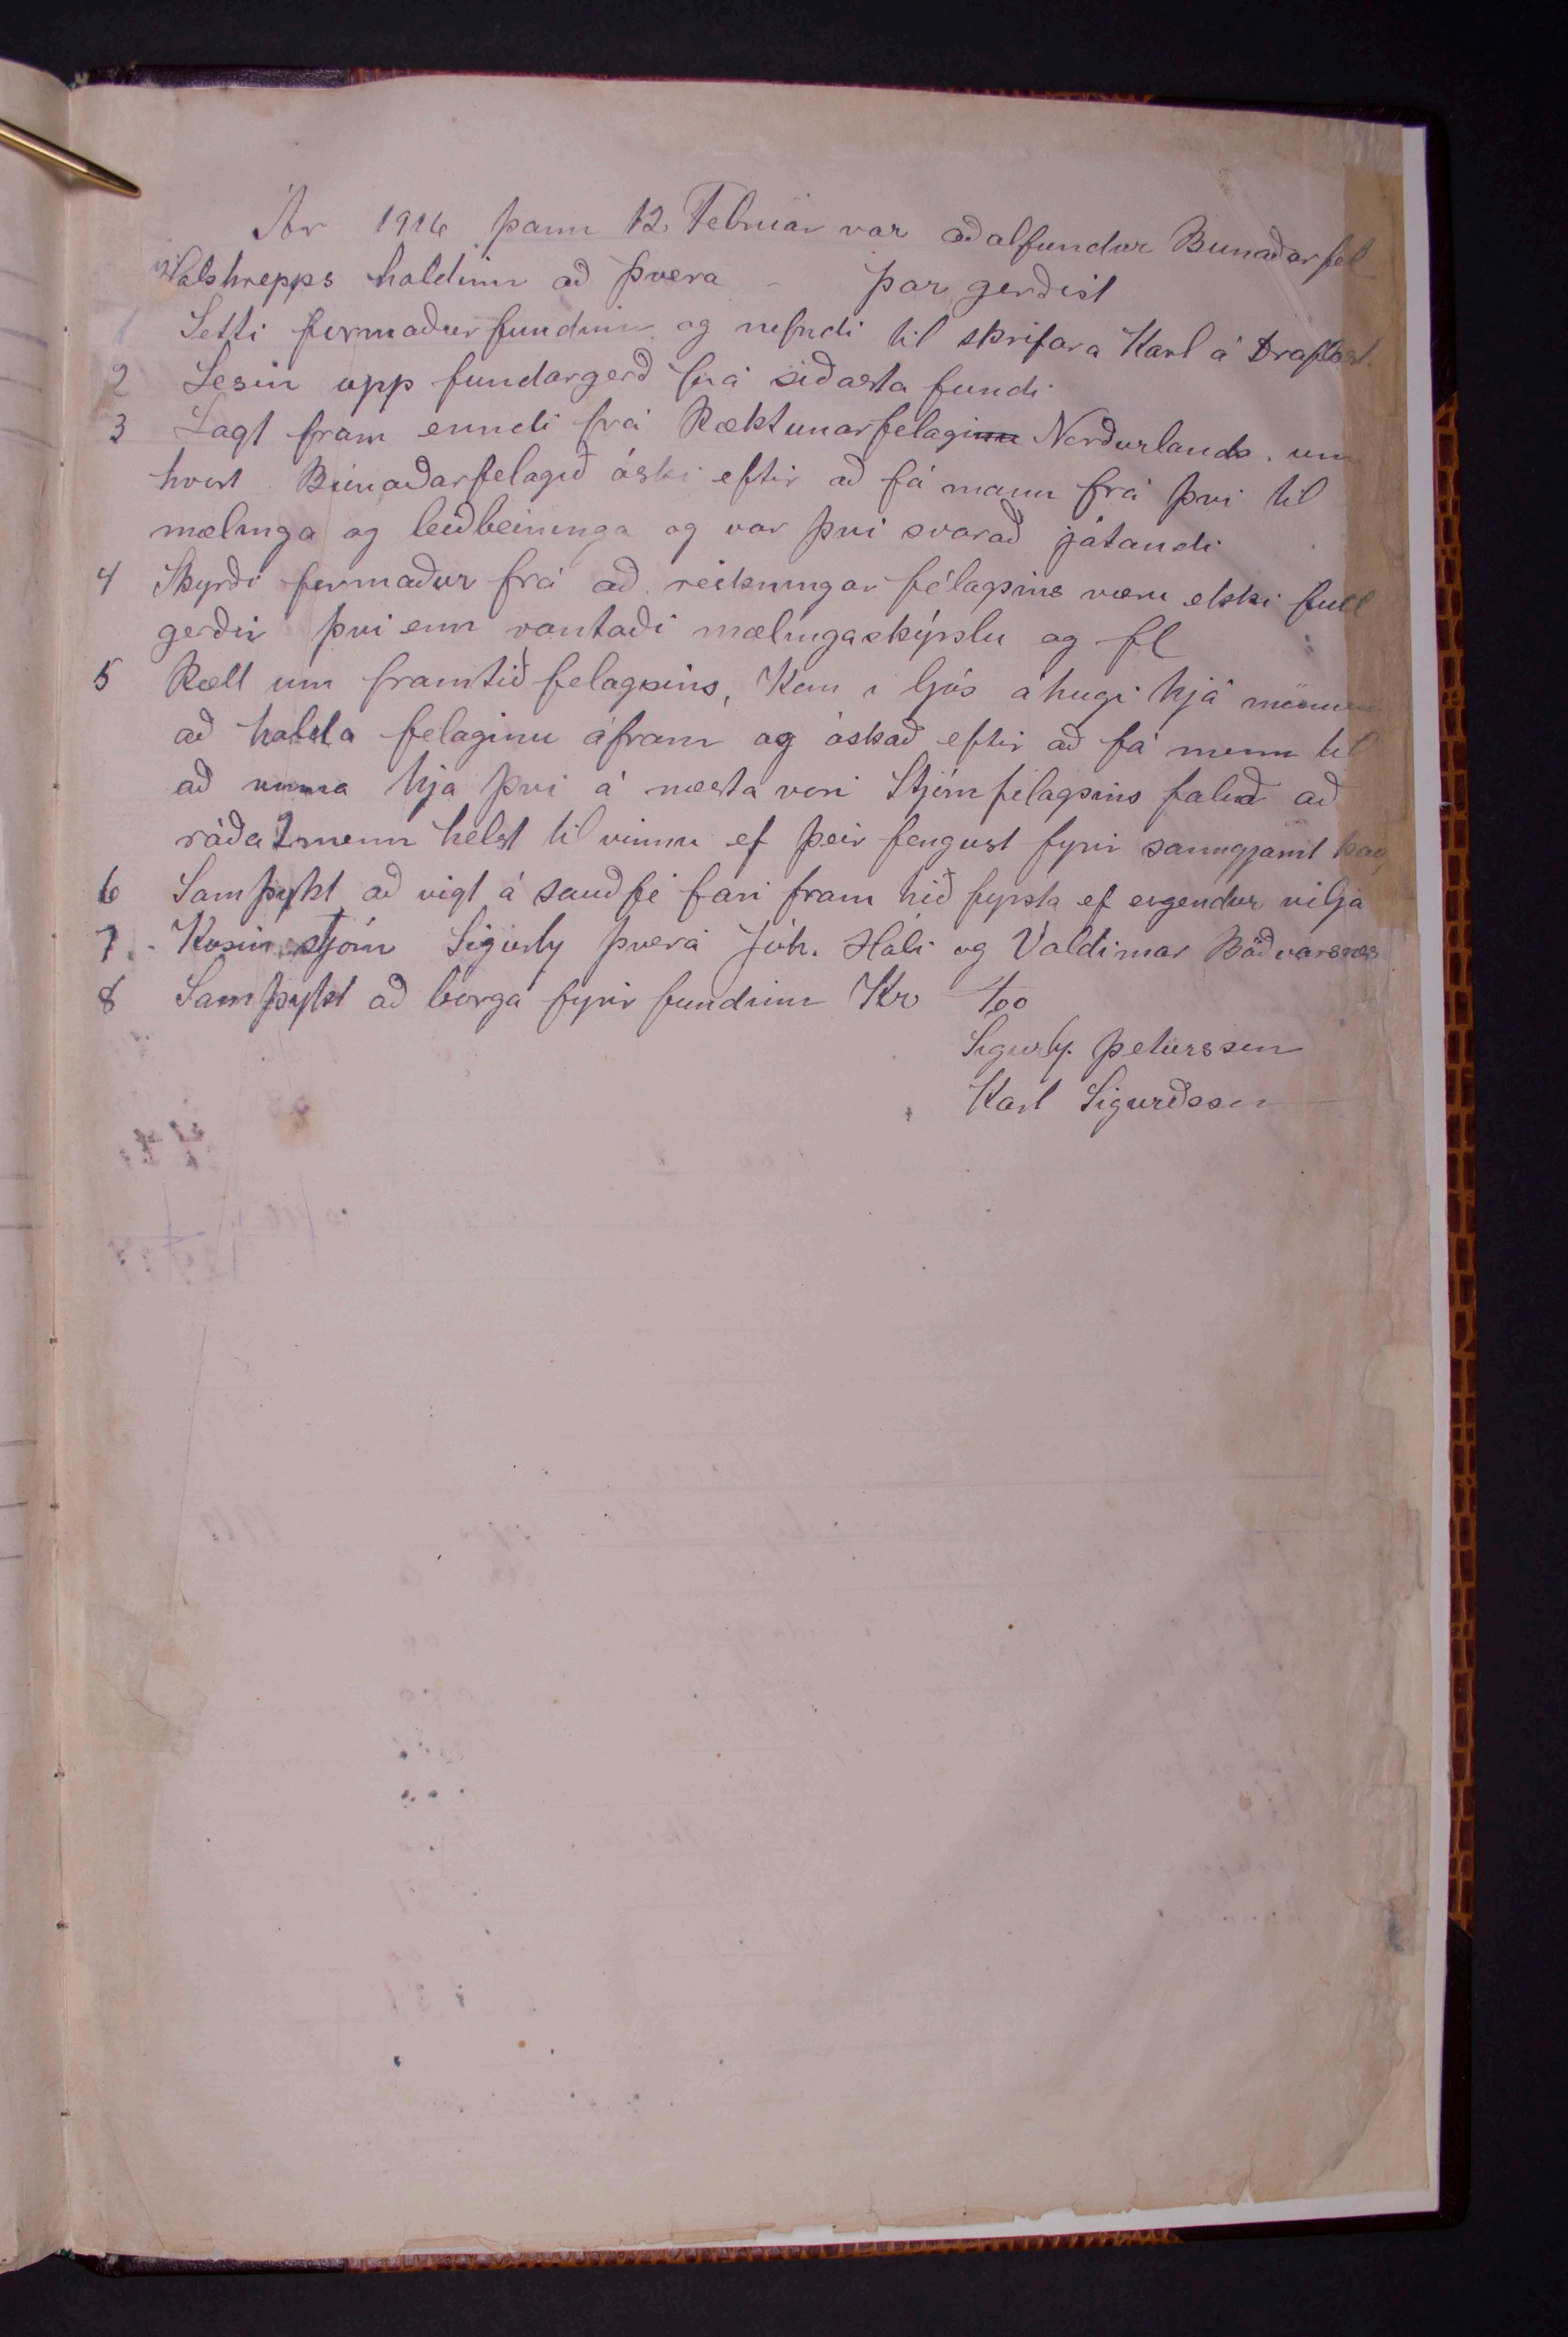 Ár 1916 þann 12. Februar var aðalfundur Bunaðarfel
Halshrepps haldinn að þvera - þar gerðist
1 Setti formaður fundinn og nefndi til skrifara Karl á Draflast.
2 Lesin upp fundargerð frá síðasta fundi
3 Lagt fram erindi frá Ræktunarfelaginu Norðurlands. um
hvort Búnaðarfelagið óski eftir að fá mann frá því til
mælinga og leiðbeininga og var því svarað játandi
4 Skyrði formaður frá að reikningar félagsins væru ekki full
gerðir því enn vantaði mælingaskýrslu og fl
5 Rætt um framtið felagsins, Kom i ljós áhugi hjá mönnum
að halda felaginu áfram og óskað eftir að fá menn til
að vinna hja því á næsta vori Stjórn félagsins falið að
ráða 2 menn helst til vinnu ef þeir fengust fyrir sanngjarnt kaup
6 Samþykt að vigt á sauðfé fari fram hið fyrsta ef eigendur vilja
7. - Kosin stjórn Sigurby þverá Jóh. Hali og Valdimar Böðvarsnes
8 Samþykt að borga fyrir fundinn Kr 400
Sigurby. Peturssen
Karl Sigurðsson